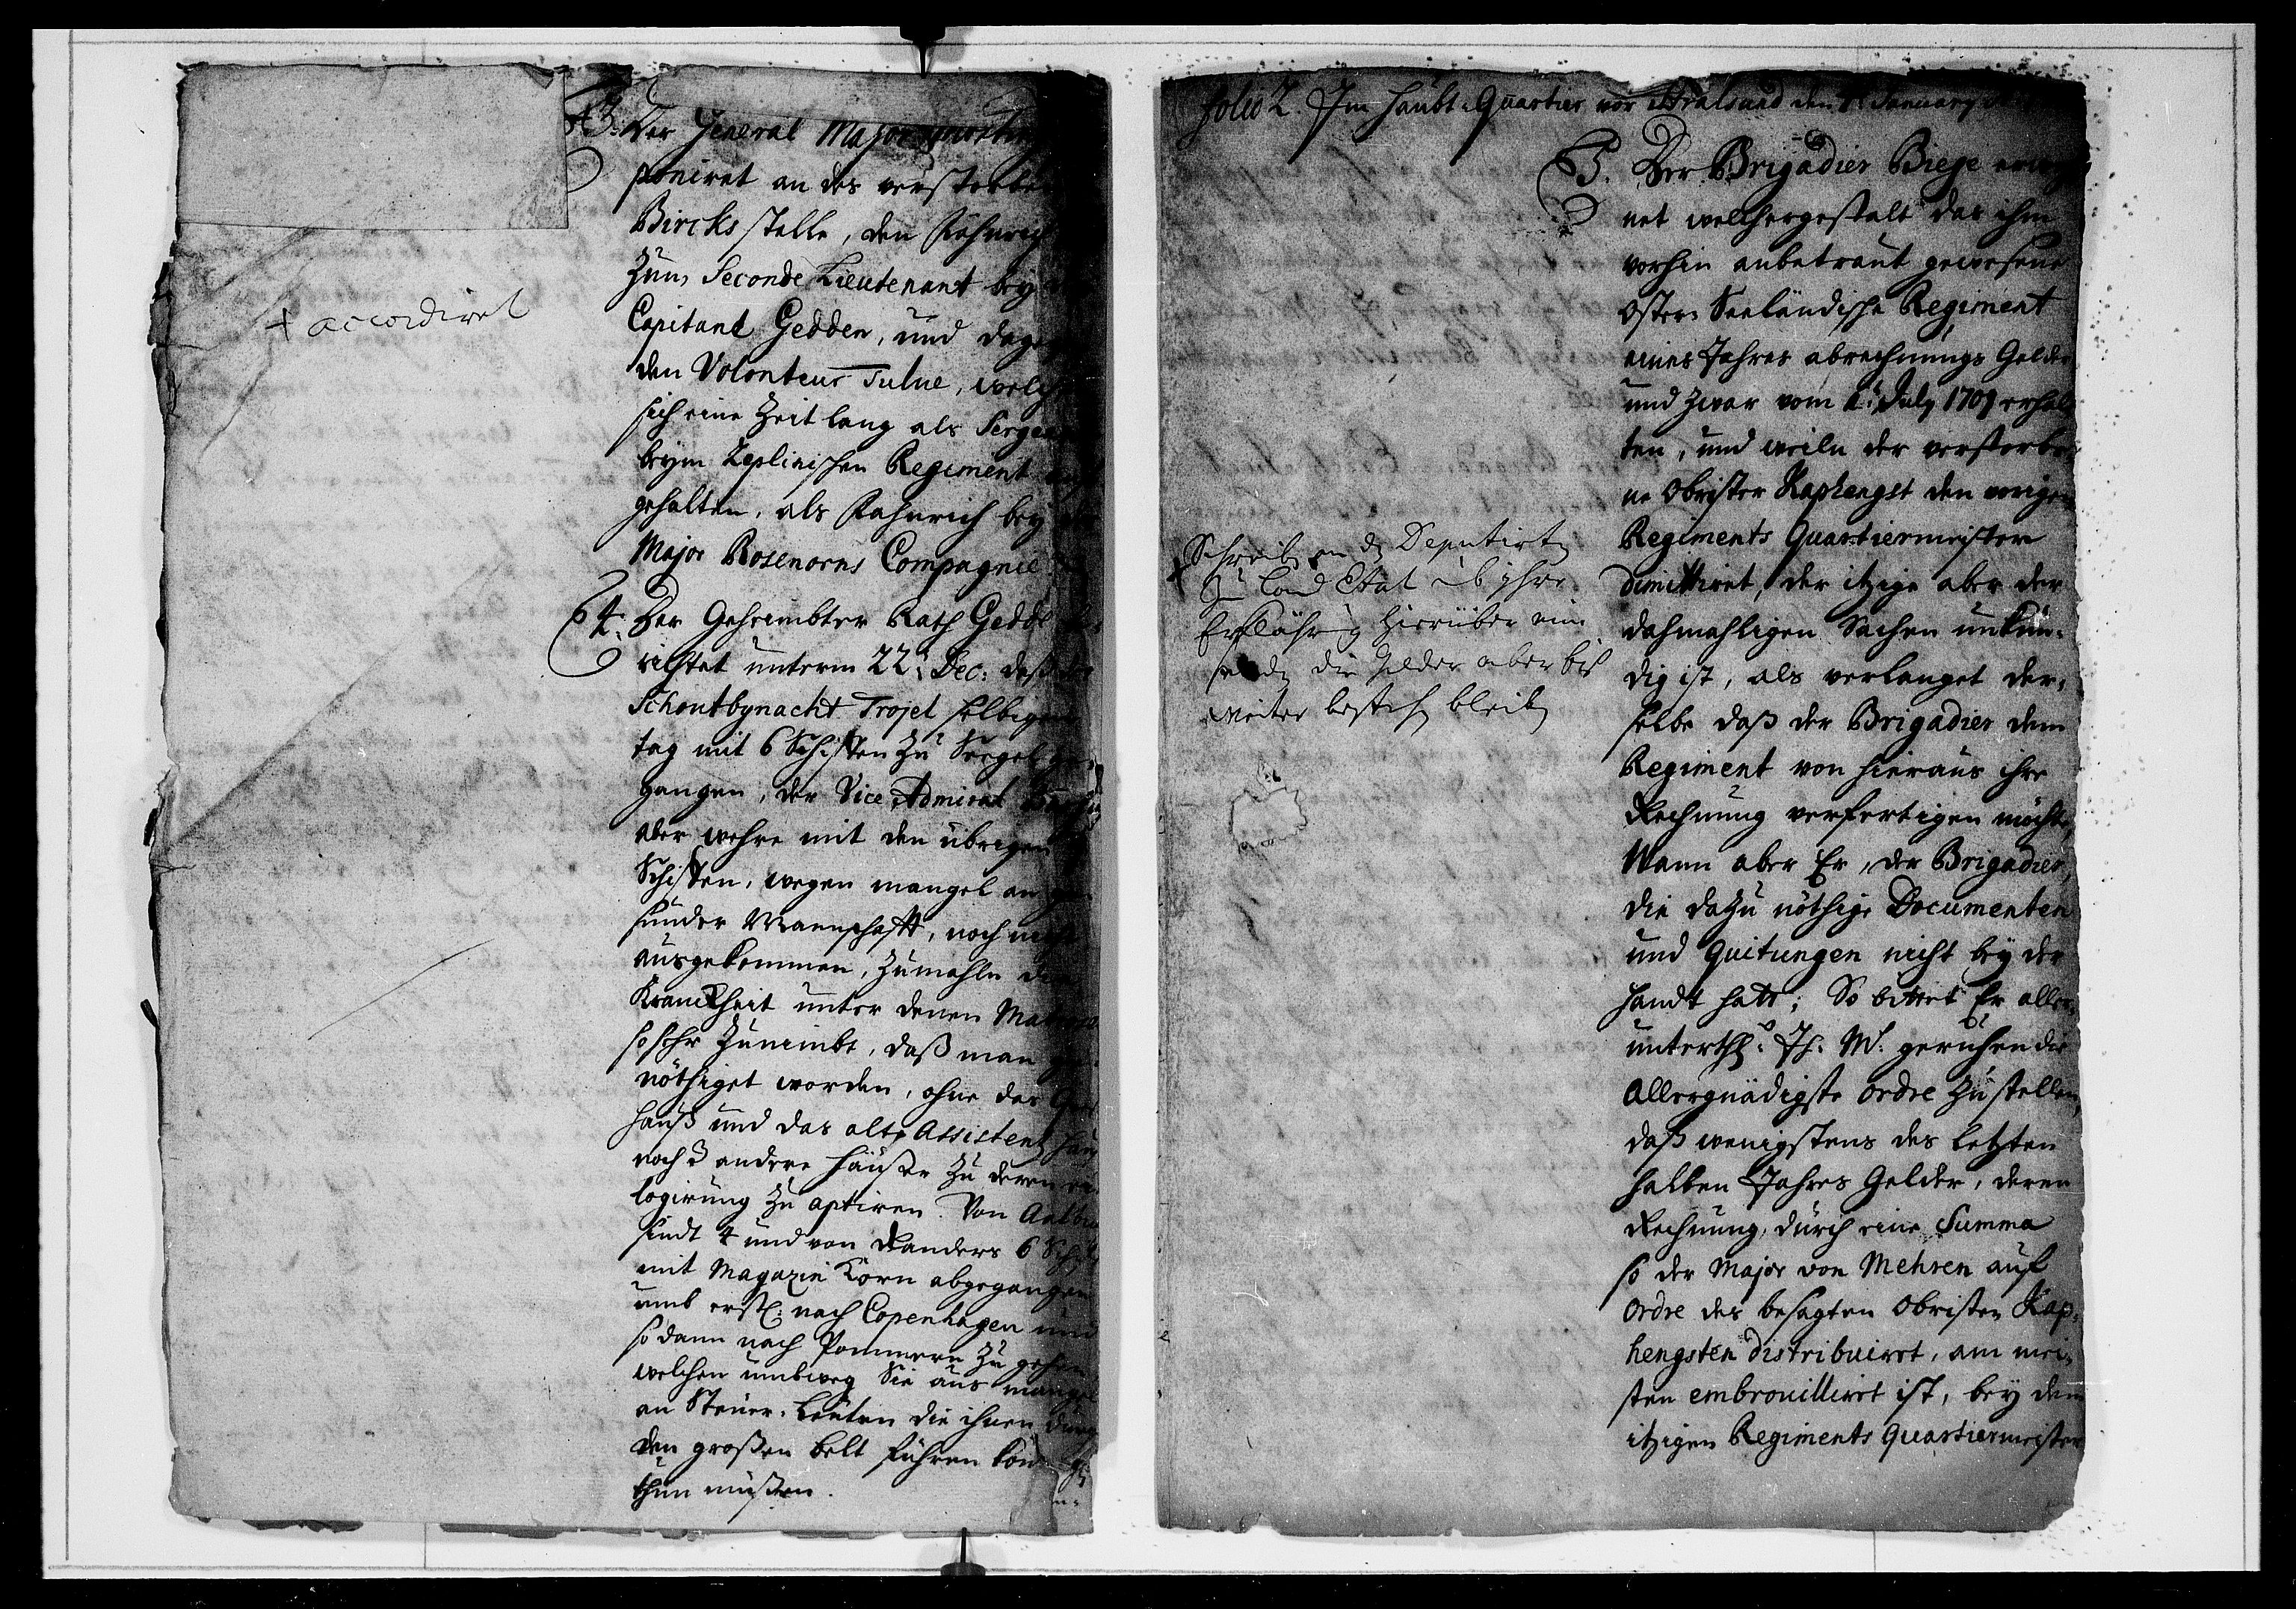 3. Der General Major
poniret an des verstorbe
Bircks stelle, den Fähnrich
zum Seconde Lieutenant bey
Capitant Gedden, und dage
den Volonteur Tulne, welch
sich eine Zeit lang als Sergea
beym Zeplinischen Regiment
gehalten, als Fähnrich bey
Major Rosenorns Compagnie
+ accordiret
4. Der Geheimbter Rath Gedde
richtet unterm 22t Dec: daß der
Schoutbynacht Trojel selbigen
tag mit 6 Schiffen zu Seegel ge
gangen, der Vice Admiral
aber wehre mit den übrigen
Schiffen, wegen mangel an ge
sunder Mannschafft, noch nicht
ausgekommen, zumahln die
Kranckheit unter denen Matro
so sehr zunimbt, daß man ge
nöthiget worden, ohne das
hauß und das alte Assistentz hauß
noch 3 andere häußer zu deren
logirung zu aptiren. Von Aalb
sindt 4 und von Randers 6 Schiffe
mit Magazin Korn abgegangen
umb erstl: nach Copenhagen und
so dann nach Pommern zu gehen
welchen umbweg Sie aus mangel
an Steuer-Leuten die ihnen durch
den großen belt führen kön
thun müßen.
folio 2. Im Haubt-Quartier vor Stralsund den January
5. Der Brigadier Biege
net welchergestalt das ihm
vorhin anbetraut gewesene
Oster-Seeländische Regiment
eines Jahres abrechnungs Gelder
und zwar vom 1t July 1709 erhal
ten, und weiln der verstorbe
ne Obrister Kaphengst den vorigen
Regiments Quartiermeister
dimittiret, der itzige aber der
dahmahligen Sachen unkün-
dig ist, als verlanget der-
selbe daß der Brigadier dem
Regiment von hieraus ihre
Rechnung verfertigen möchte
Wann aber Er, der Brigadier,
die dazu nöthige Documenten
und Quitungen nicht bey der
handt hatt; So bittet Er aller-
unterth: Ih: M: geruhen die
Allergnädigste ordre zu stellen,
daß wenigstens des letzten
halben Jahres Gelder, deren
Rechnung, durch eine Summa
so der Major von Mehren auf
Ordre des besagten Obristen Kap-
hengsten distribuirt, am mei-
sten embrouillirt ist, bey dem
itzigen Regiments Quartiermeister
+ Schreib an d Deputirt
zu Land Etat ihre
Erklährung hierüber ein
die gelder aber biß
weiter besteh bleib